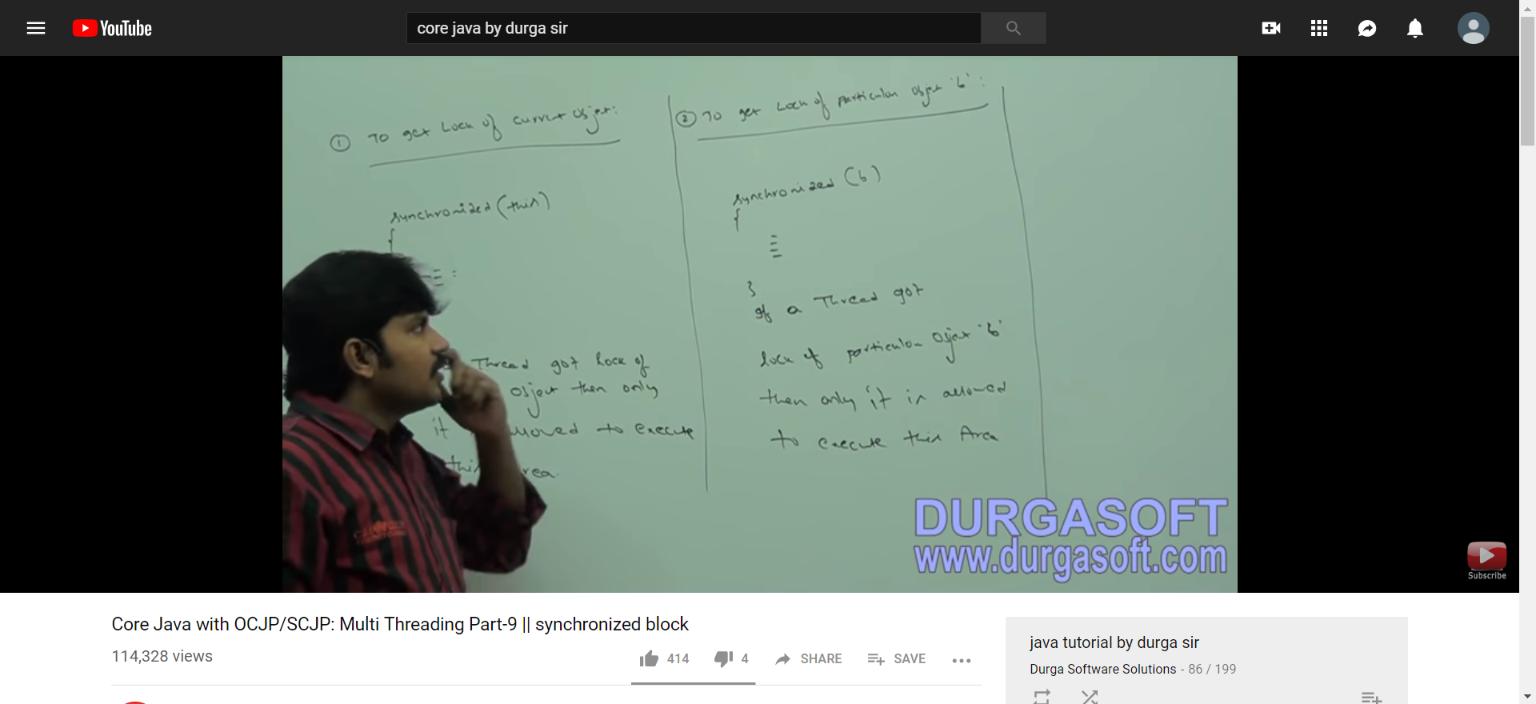 YouTube
core java by durga sir
① To get Lock of current object:
synchronized(this)
{
Thread got Lock of
object then only
it allowed to execute
this Area
② To get Lock of particular object 'b':
synchronized (b)
{
}
If a Thread got
lock of particular object 'b'
then only it is allowed
to execute this Area
DURGASOFT
www.durgasoft.com
Subscribe
Core Java with OCJP/SCJP: Multi Threading Part-9 || synchronized block
114,328 views
414
4
SHARE
SAVE
java tutorial by durga sir
Durga Software Solutions - 86 / 199